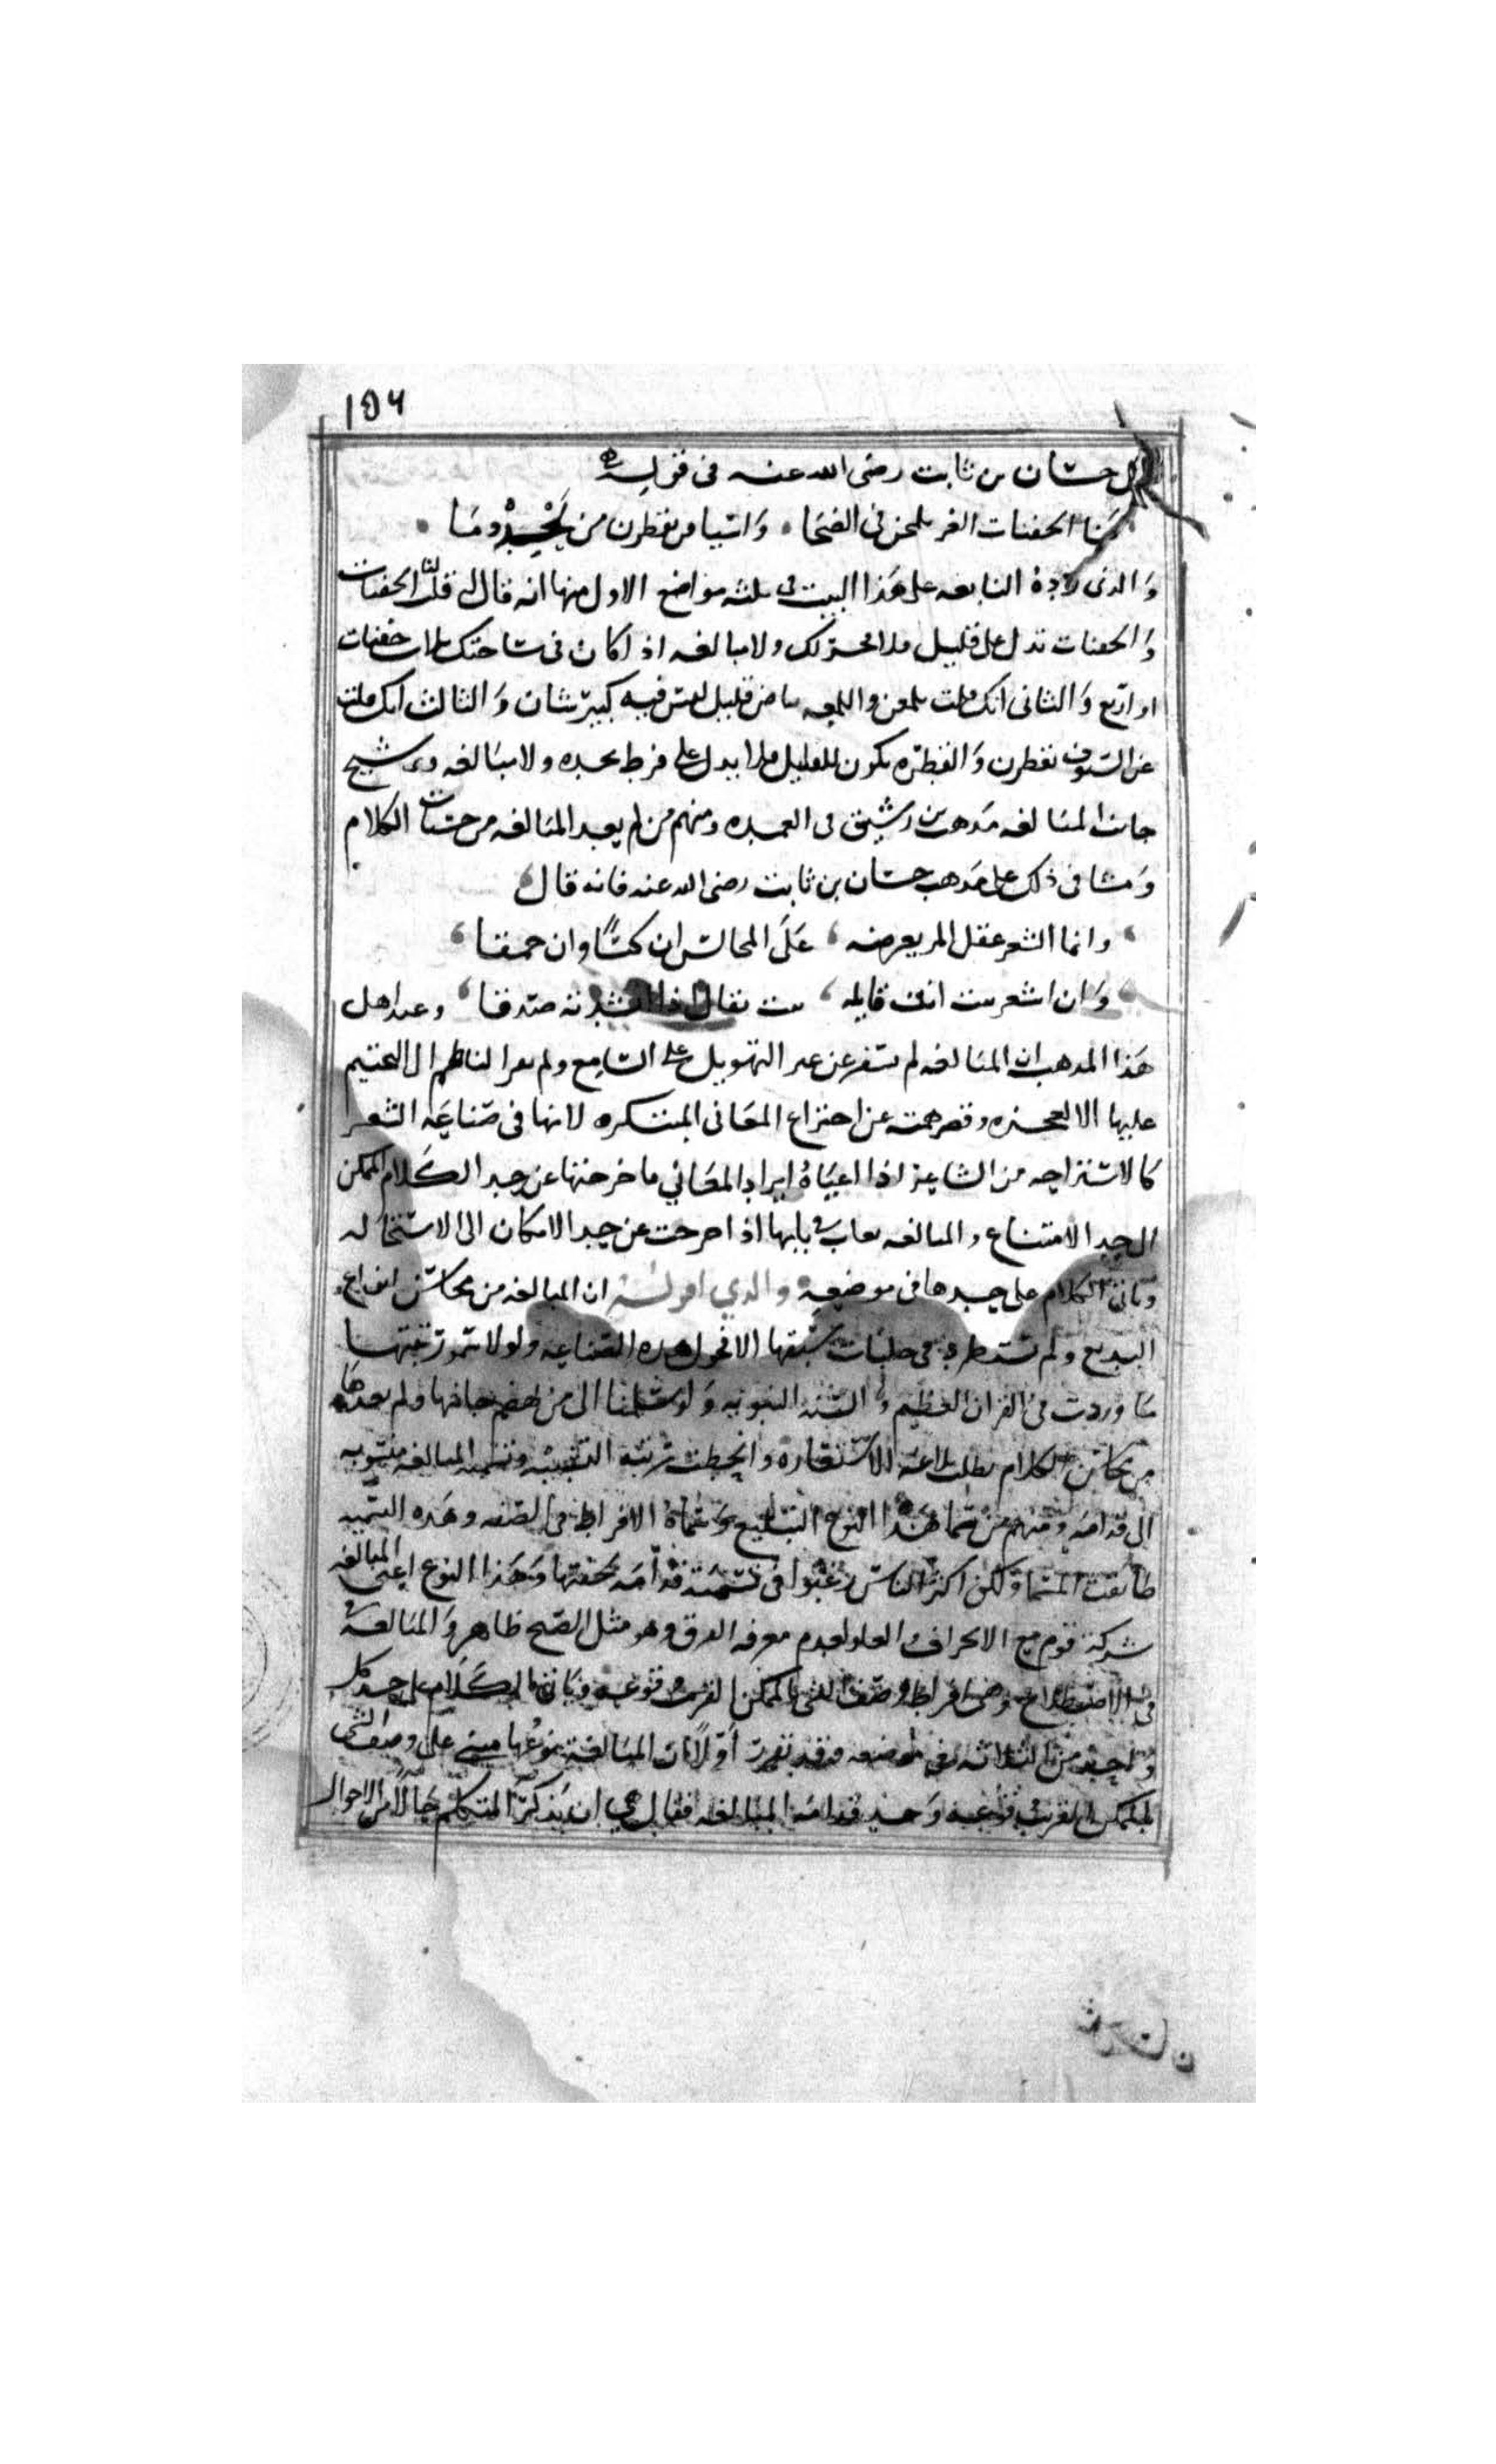 ١٥٦
حسان بن ثابت رضى الله عنه فى قوله
لنا الجفنات الغر يلمعن فى الضحا واسيافنا يقطرن من نجدة دما
والذى رده النابغه على هذا البيت فى ثلثه مواضع الاول منها انه قال له قلت لنا الجفنات
والجفنات تدل على قليل فلا فخر لك ولا مبالغه اذا كان فى ساحتك ثلاث جفنات
او اربع والثانى انك قلت يلمعن واللمعه بياض قليل ليس فيه كبير شان والثالث انك قلت
عن السيوف يقطرن والقطره تكون للقليل فلا يدل على فرط نجده ولا مبالغه وترشيح
جانب المبالغه مذهب بن رشيق فى العمده ومنهم من لم يعد المبالغه من حسنات الكلام
ومشا فى ذلك على مذهب حسان بن ثابت رضى الله عنه فانه قال
وانما الشعر عقل المر يعرضه على المجالس ان كيسا وان حمقا
وان اشعر بيت انت قايله بيت يقال اذا انشدته صدقا وعند اهل
هذا المذهب ان المبالغه لم تسفر عن غير التهويل على السامع ولم يفر الناظم الى التخييم
عليها الا لعجزه وقصر همته عن اختراع المعانى المبتكره لانها فى صناعه الشعر
كالاستراحه من الشاعر اذا اعياه ايراد المعاني ما خرجتها عن حد الكلام الممكن
الى حد الامتناع والمبالغه تعاب فى بابها اذا خرجت عن حد الامكان الى الاستحاله
وياتى الكلام على حدها فى موضعه والذي اقوله ان المبالغه من محاسن انواع
البديع ولم تستطرد فى حلبات سبقها الا فحول هذه الصناعه ولولا سمو رتبتها
ما وردت فى القران العظيم والسنه النبويه ولو سلمنا الى من يهضم جانبها ولم يعدها
من محاسن الكلام بطلت بلاغه الاستعاره وانحطت رتبة التشبيه وتسميه المبالغه منسوبه
الى قدامه ومنهم من سما هذا النوع التبليغ وسماه الافراط فى الصفه وهذه التسميه
طابقت المسما ولكن اكثر الناس رغبوا فى تسمية قدامه لخفتها وهذا النوع اعنى المبالغه
شركه قوم مع الاغراق والغلو لعدم معرفه الفرق وهو مثل الصبح ظاهر والمبالغه
فى الاصطلاح هى افراط وصف الشى بالممكن القريب وقوعه وياتى الكلام على حد كل
واحد من الثلاثه فى موضعه وقد تقرر أولا ان المبالغة نوعها مبنى على وصف الشى
بالممكن القريب وقوعه وحد قدامه المبالغه فقال هى ان يذكر المتكلم حالا من الاحوال